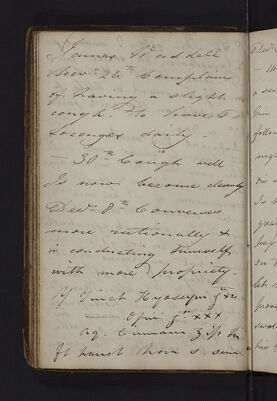 James Waddell
Novr 26th Complains
of having a slight
cough. To have 6
lozenges daily
— 30th Cough well
Is now become cleanly
Decr 8th Converses
more rationally &
is conducting himself
with more propriety.
Tinct Hyoscyam
— Opii xxx
aq. Cinnam
ft haust hora s. sum